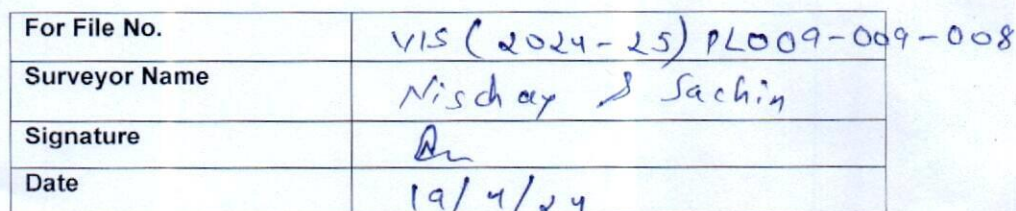 For File No. VIS (2024-25) PL009-009-008
Surveyor Name Nischay & Sachin
Signature
Date 19/4/24